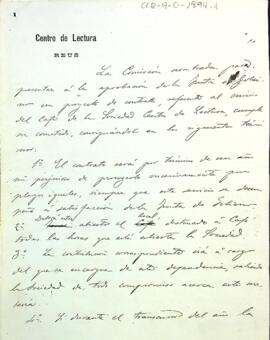 CLR-9.0-1894.1
1
Centro de Lectura
REUS
La Comisión nombrada para
presentar á la aprobación de la Junta de Gobier
no un proyecto de contrato, referente al servicio
del Café de la Sociedad Centro de Lectura, cumple
su cometido, consignándolo en los siguientes térmi
nos:
1º El contrato será por término de un año
sin perjuicio de prorrogarlo
pliegos iguales, siempre que este servicio se desem
peñe á satisfacción de la Junta de Gobierno
2º abierto el local destinado á Café
todas las horas que esté abierta la Sociedad
3º La contribución correspondiente irá á cargo
del que se encargue de esta dependencia, saliendo
la Sociedad de todo compromiso acerca esta ma
teria.
4º Si durante el transcurso del año la